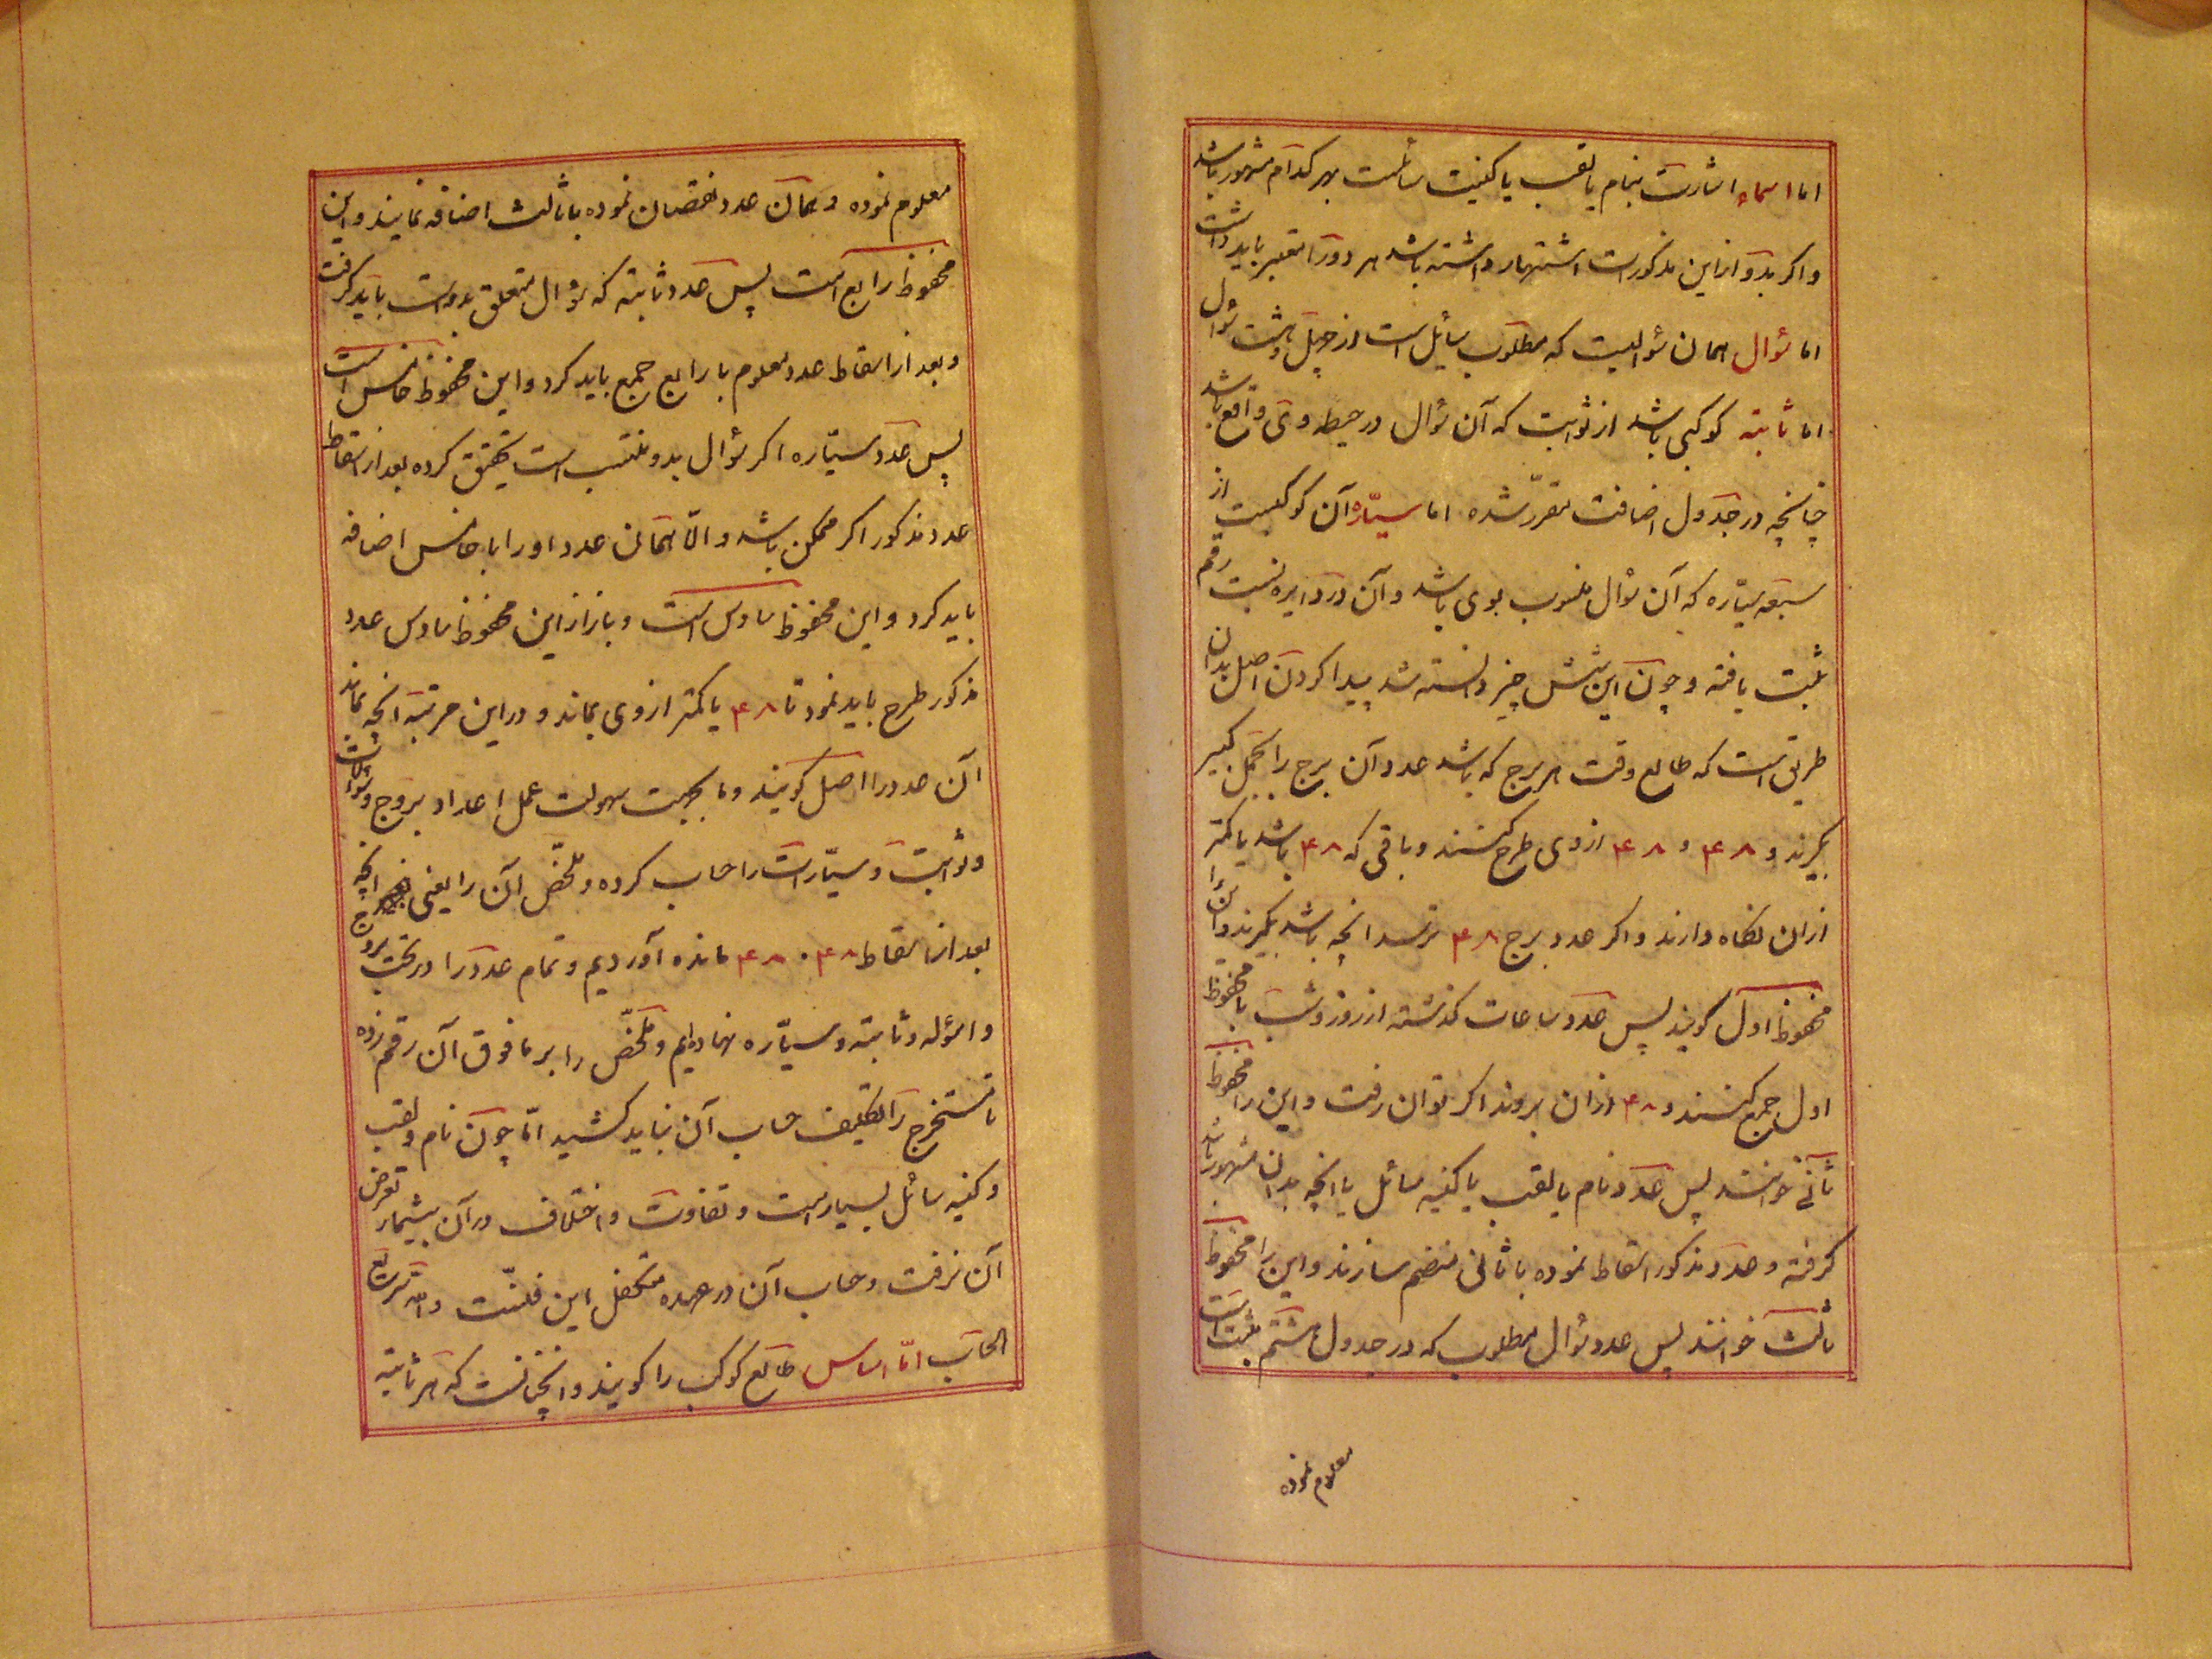 اما اسماء اشارت بنام یا لقب یا کنیت سائلست بهر کدام مشهور باشد
واکر بدو از این مذکورات اشتهار داشته باشد هر دو را معتبر باید داشت
اما سؤال همان سؤالیست که مطلوب سایل است از چهل و هشت سؤال
اما ثابته کوکبی باشد از ثوابت که آن سؤال در حیطه وی واقع باشد
چنانچه در جدول اضافت مقرّر شده اما سیّاره آن کوکبیست از
سبعه سیّاره که آن سؤال منسوب بوی باشد و آن در دایره نسبت رقم
ثبت یافته و چون این شش چیز دانسته شد پیدا کردن اصل بدان
طریق است که طالع وقت هر برج که باشد عدد آن برج را بجمل کبیر
بکیرند و ۴۸ و ۴۸ از وی طرح کنند و باقی که ۴۸ باشد یا کمتر
ازان نکاه دارند و اکر عدد برج ۴۸ نرسد انچه باشد بکیرند و آن را
محفوظ اول کویند پس عدد ساعات کذشته از روز و شب با محفوظ
اول جمع کنند و ۴۸ ازان بروند اکر توان رفت و این را محفوظ
ثانی خوانند پس عدد نام یا لقب یا کنیه سائل یا انچه بدان مشهور باشد
کرفته و عدد مذکور اسقاط نموده با ثانی منضم سازند و این را محفوظ
ثالث خوانند پس عدد سؤال مطلوب که در جدول هشتم ثبت است
معلوم نموده
معلوم نموده و همان عدد نقصان نموده با ثالث اضافه نمایند و این
محفوظ رابع است پس عدد ثابته که سؤال متعلق بدوست باید کرفت
و بعد از اسقاط عدد معلوم با رابع جمع باید کرد و این محفوظ خامس است
پس عدد سیّاره اکر سؤال بدو منتسب است تحقیق کرده بعد از اسقاط
عدد مذکور اکر ممکن باشد و الّا همان عدد او را با خامس اضافه
باید کرد و این محفوظ سادس است و باز از این محفوظ سادس عدد
مذکور طرح باید نمود تا ۴۸ یا کمتر از وی بماند و در این مرتبه انچه بماند
آن عدد را اصل کویند و ما بجهت سهولت عمل اعداد بروج و سؤالات
و ثوابت و سیّارات را حساب کرده و ملخّص آن را یعنی انچه
بعد از اسقاط ۴۸ و ۴۸ مانده آوردیم و تمام عدد را در تحت بروج
و اسؤله و ثابته و سیّاره نهاده‌ایم و ملخّص را بر مافوق آن رقم زده
تا مستخرج را تکلیف حساب آن نباید کشید امّا چون نام و لقب
و کنیه سائل بسیار است و تفاوت و اختلاف در آن بیشمار تعرض
آن نرفت و حساب آن در عهده متکفل این فنّست والله سریع
الحساب امّا اساس طالع کوکب را کویند و آنچنانست که هر ثابته